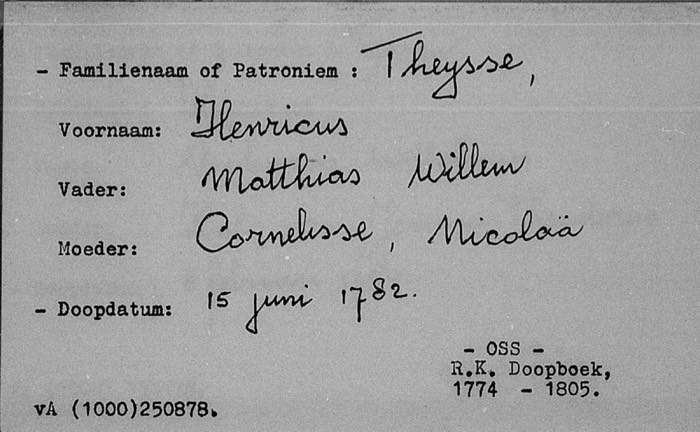 - Familienaam of Patroniem : Theysse,
Voornaam: Henricus
Vader: Matthias Willem
Moeder: Cornelisse, Nicolaä
- Doopdatum: 15 juni 1782.
- OSS -
R.K. Doopboek,
1774 - 1805.
vA (1000)250878.